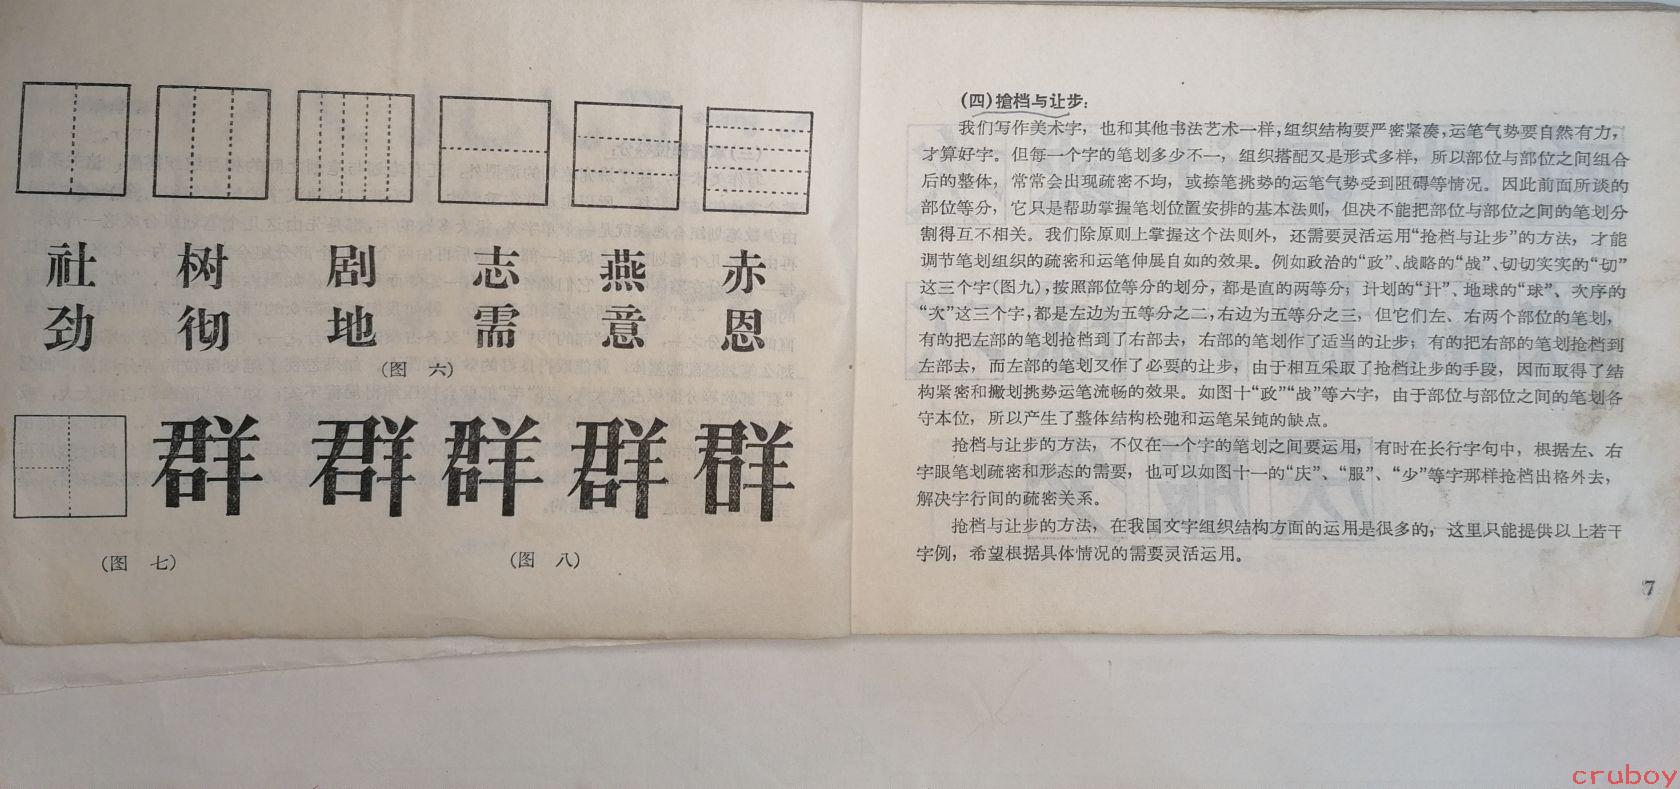 社 树 剧 志 燕 赤
劲 彻 地 需 意 恩
(图 六)
群 群 群 群 群
(图 七)
(图 八)
(四)搶档与让步:
我们写作美术字，也和其他书法艺术一样，组织结构要严密紧凑，运笔气势要自然有力，
才算好字。但每一个字的笔划多少不一，组织搭配又是形式多样，所以部位与部位之间组合
后的整体，常常会出现疏密不均，或捺笔挑势的运笔气势受到阻碍等情况。因此前面所谈的
部位等分，它只是帮助掌握笔划位置安排的基本法则，但决不能把部位与部位之间的笔划分
割得互不相关。我们除原则上掌握这个法则外，还需要灵活运用“抢档与让步”的方法，才能
调节笔划组织的疏密和运笔伸展自如的效果。例如政治的“政”、战略的“战”、切切实实的“切”
这三个字(图九)，按照部位等分的划分，都是直的两等分；计划的“计”、地球的“球”、次序的
“次”这三个字，都是左边为五等分之二，右边为五等分之三，但它们左、右两个部位的笔划，
有的把左部的笔划抢档到了右部去，右部的笔划作了适当的让步；有的把右部的笔划抢档到
左部去，而左部的笔划又作了必要的让步，由于相互采取了抢档让步的手段，因而取得了结
构紧密和撇划挑势运笔流畅的效果。如图十“政”“战”等六字，由于部位与部位之间的笔划各
守本位，所以产生了整体结构松弛和运笔呆钝的缺点。
抢档与让步的方法，不仅在一个字的笔划之间要运用，有时在长行字句中，根据左、右
字眼笔划疏密和形态的需要，也可以如图十一的“庆”、“服”、“少”等字那样抢档出格外去，
解决字行间的疏密关系。
抢档与让步的方法，在我国文字组织结构方面的运用是很多的，这里只能提供以上若干
字例，希望根据具体情况的需要灵活运用。
7
cruboy